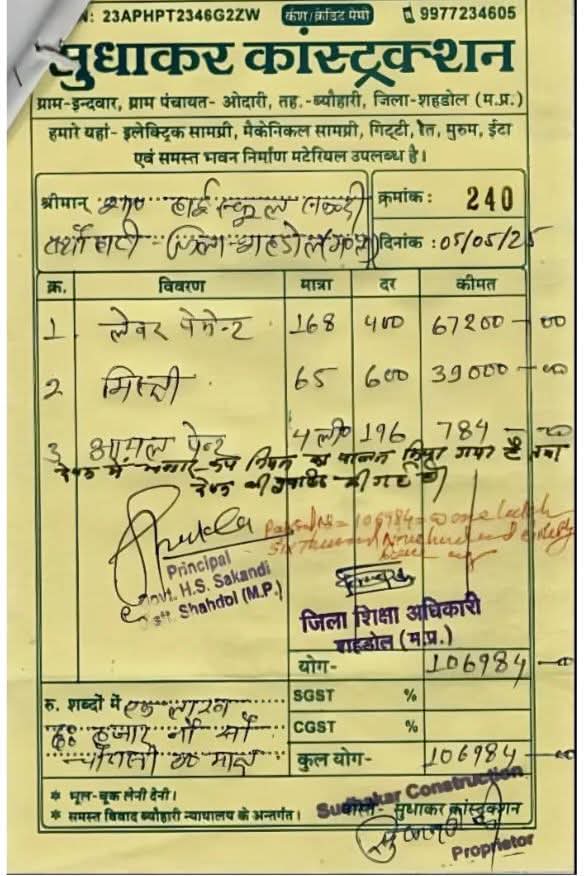 N: 23APHPT2346G2ZW कैश/क्रेडिट मेमो 9977234605
सुधाकर कांस्ट्रक्शन
ग्राम-इन्दवार, ग्राम पंचायत- ओदारी, तह.-ब्यौहारी, जिला-शहडोल (म.प्र.)
हमारे यहां- इलेक्ट्रिक सामग्री, मैकेनिकल सामग्री, गिट्टी, रेत, मुरुम, ईटा
एवं समस्त भवन निर्माण मटेरियल उपलब्ध है।
श्रीमान् हाई स्कूल क्रमांक : 240
दिनांक : 05/05/25
क्र. विवरण मात्रा दर कीमत
1 लेवर पेमेन्ट 168 400 67200-00
2 मिस्त्री 65 600 39000-00
3 आयल पेन्ट 4 ली० 196 784-00
का पालन किया गया है तथा
की गई है
Passed Rs= 106984=00 one lakh
Six thousand Nine hundred eighty
four
Principal
Govt. H.S. Sakandi
Distt. Shahdol (M.P.)
जिला शिक्षा अधिकारी
शहडोल (म.प्र.)
योग- 106984-00
रु. शब्दों में एक लाख SGST %
हजार नौ सौ CGST %
मात्र कुल योग- 106984-00
* भूल-चूक लेनी देनी।
* समस्त विवाद ब्यौहारी न्यायालय के अन्तर्गत।
Sudhakar Construction
वास्ते- सुधाकर कांस्ट्रक्शन
Proprietor